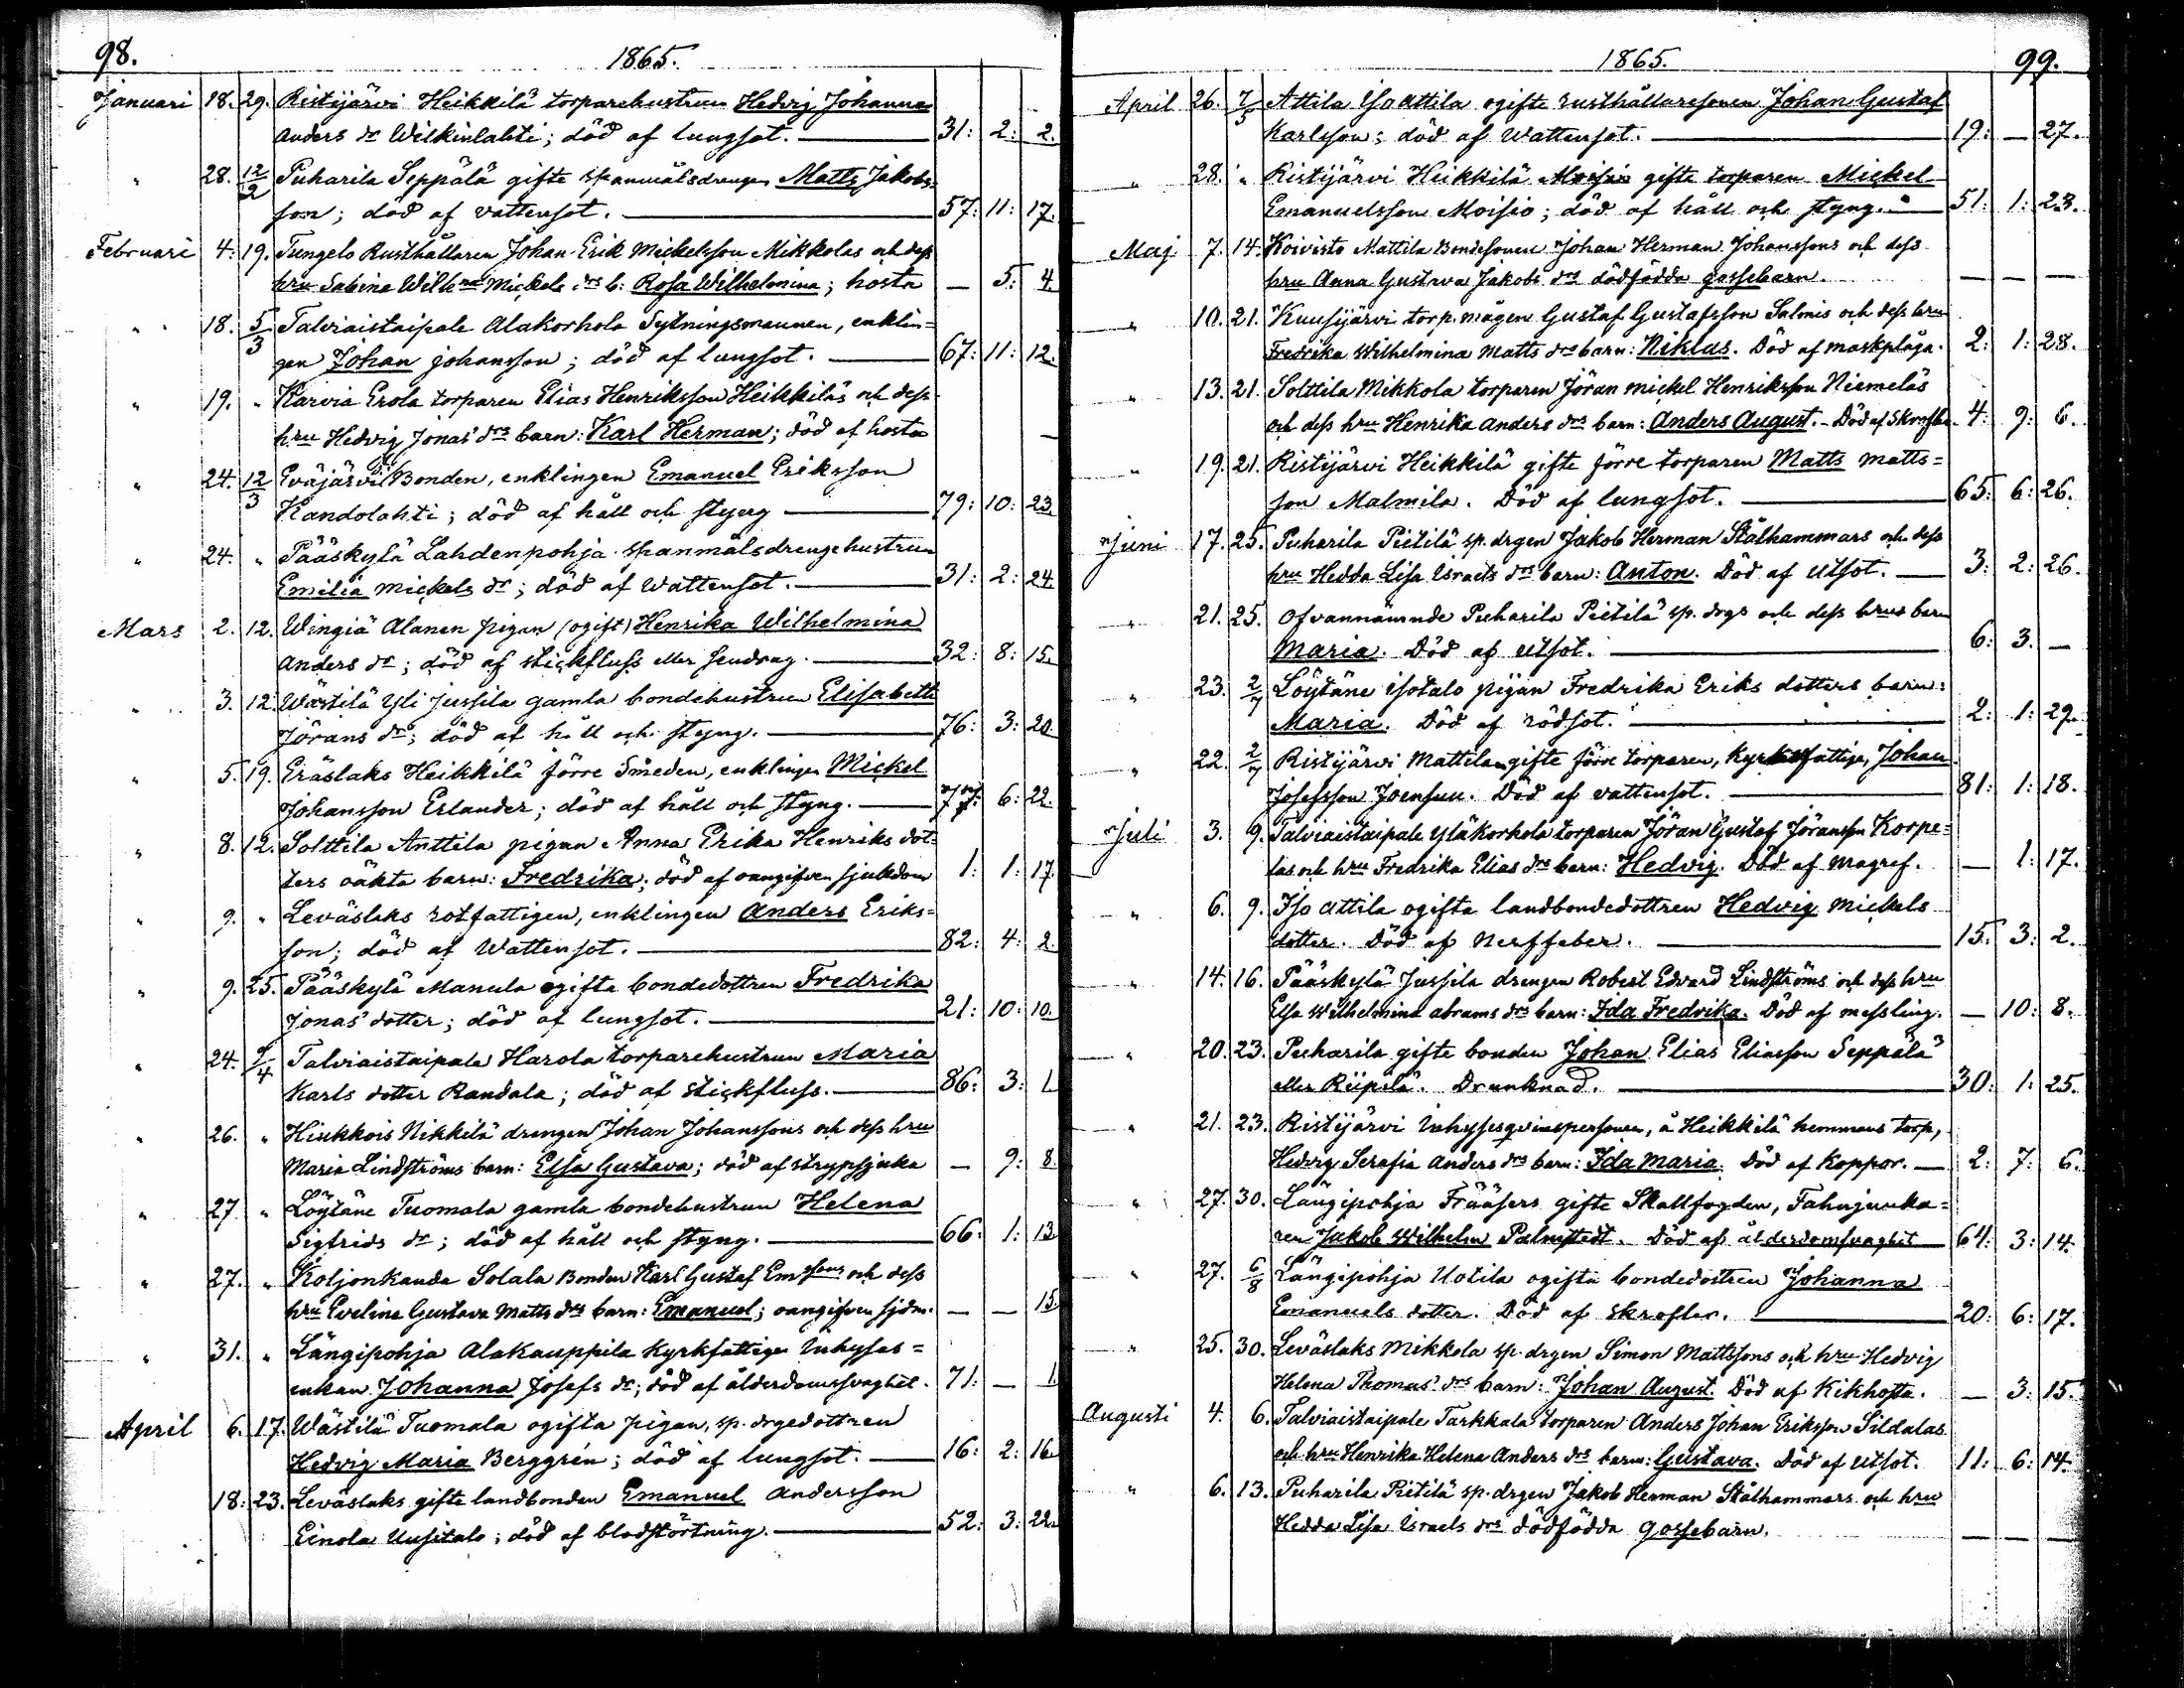 98.
1865.
Januari 18. 29. Ristijärvi Heikkilä torparehustrun Hedvig Johanna
Anders dr Wilkinlahti; död af lungsot. 31: 2: 2.
" 28. 12/2 Puharila Seppälä gifte spanmålsdrengen Matts Jakobs-
son; död af vattensot. 57: 11: 17.
Februari 4. 19. Tungelo Rusthållaren Johan Erik Mickelsson Mikkolas och dess
hru Sabina Wilhna Mickels drs b: Rosa Wilhelmina; hosta — 5: 4
" 18. 5/3 Talviaistaipale Alakorhola Sytningsmannen, enklin=
gen Johan Johansson; död af lungsot. 67: 11: 12.
" 19. " Karvia Erola torparen Elias Henriksson Heikkiläs och dess
hru Hedvig Jonas drs barn: Karl Herman; död af hosta —
" 24. 12/3 Eväjärvi Bonden, enklingen Emanuel Eriksson
Kandolahti; död af håll och styng 79: 10: 23
" 24. " Pääskylä Lahdenpohja spanmålsdrengehustrun
Emilia Mickels dr; död af Wattensot. 31: 2: 24
Mars 2. 12. Wingiä Alanen pigan (ogift) Henrika Wilhelmina
Anders dr; död af stickfluss eller sendrag. 32: 8: 15.
" 3. 12. Wästilä Yli Jussila gamla bondehustrun Elisabeth
Jörans dr; död af håll och styng. 76: 3: 20.
" 5. 19. Eräslaks Heikkilä förre Smeden, enklingen Mickel
Johansson Erlander; död af håll och styng. 77: 6: 22.
" 8. 12. Solttila Anttila pigan Anna Erika Henriks dot=
ters oäkta barn: Fredrika; död af oangifven sjukdom 1: 1: 17
" 9. " Leväslaks rotfattigen, enklingen Anders Eriks=
son; död af Wattensot. 82: 4: 2.
" 9. 25. Pääskylä Manula ogifta bondedottren Fredrika
Jonas dotter; död af lungsot. 21: 10: 10.
" 24. /4 Talviaistaipale Harola torparehustrun Maria
Karls dotter Randala; död af stickfluss. 86: 3: 1
" 26. " Hiukkois Nikkilä drengen Johan Johanssons och dess hru
Maria Lindströms barn: Elsa Gustava; död af strypsjuka — 9: 8.
" 27 " Löytäne Tuomala gamla bondehustrun Helena
Sigfrids dr; död af håll och styng. 66: 1: 13
" 27. " Koljonkanda Solala Bonden Karl Gustaf Emssons och dess
hru Evelina Gustava Matts drs barn: Emanuel; oangifven sjdm. — — 15.
" 31. " Längipohja Alakauppila Kyrkfattige Inhyses=
enkan Johanna Josefs dr; död af ålderdomssvaghet. 71: — 1.
April 6. 17. Wästilä Tuomala ogifta pigan, sp. drgedottren
Hedvig Maria Berggrén; död af lungsot. 16: 2: 16
18: 23. Leväslaks gifte landbonden Emanuel Andersson
Einola Uusitalo; död af blodstörtning. 52: 3: 22.
1865.
99.
April 26. 7/5 Attila Isoattila ogifte rusthållaresonen Johan Gustaf
Karlsson; död af Wattensot. 19: — 27.
" 28. " Ristijärvi Heikkilä Moisio gifte torparen Mickel
Emanuelsson Moisio; död af håll och styng. 51: 1: 23.
Maj 7. 14. Koivisto Mattila Bondesonen Johan Herman Johanssons och dess
hru Anna Gustava Jakobs drs dödfödda gossebarn. — — —
" 10. 21. Kuusijärvi torp. mågen Gustaf Gustafsson Salonis och dess hru
Fredrika Wilhelmina Matts drs barn: Niklas. Död af maskplåga. 2: 1: 28.
" 13. 21. Solttila Mikkola torparen Jöran Mickel Henriksson Niemeläs
och dess hru Henrika Anders drs barn: Anders August. - Död af Skrofler. 4: 9: 6.
" 19. 21. Ristijärvi Heikkilä gifte förre torparen Matts Matts=
son Malmila. Död af lungsot. 65: 6: 26.
Juni 17. 25. Puharila Pietilä sp. drgen Jakob Herman Stålhammars och dess
hru Hedda Lisa Israels drs barn: Anton. Död af utsot. 3: 2: 26.
" 21. 25. Ofvannämnde Puharila Pietilä sp. drgs och dess hrus barn
Maria. Död af utsot. 6: 3: —
" 23. 2/7 Löytäne Isotalo pigan Fredrika Eriks dotters barn:
Maria. Död af rödsot. 2: 1: 29.
" 22. 2/7 Ristijärvi Mattila gifte förre torparen, Kyrkofattige, Johan
Josefsson Joensuu. Död af vattensot. 81: 1: 18.
Juli 3. 9. Talviaistaipale Yläkorhola torparen Jöran Gustaf Jöransson Korpe=
las och hru Fredrika Elias drs barn: Hedvig. Död af magref. — 1: 17.
" 6. 9. Iso Attila ogifta landbondedottren Hedvig Mickels
dotter. Död af Nerffeber. 15: 3: 2.
" 14. 16. Pääskylä Jussila drengen Robert Edvard Lindströms och dess hru
Elsa Wilhelmina Abrams drs barn: Ida Fredrika. Död af messling. — 10: 8.
" 20. 23. Puharila gifte bonden Johan Elias Eliasson Seppälä
eller Riipilä. Drunknad. 30: 1: 25.
" 21. 23. Ristijärvi Inhysesqvinspersonen, å Heikkilä hemmans torp,
Hedvig Serafia Anders drs barn: Ida Maria. Död af Koppor. 2: 7: 6.
" 27. 30. Längipohja Frääsers gifte Skallfogden, Fahnjunka=
ren Jakob Wilhelm Palmstedt. Död af ålderdomsvaghet 64: 3: 14.
" 27. 6/8 Längipohja Uotila ogifta bondedottren Johanna
Emanuels dotter. Död af skrofler. 20: 6: 17.
" 25. 30. Leväslaks Mikkola sp. drgen Simon Mattssons och hru Hedvig
Helena Thomas drs barn: Johan August. Död af Kikhosta. — 3: 15.
Augusti 4. 6. Talviaistaipale Tarkkala torparen Anders Johan Eriksson Sildalas
och hru Henrika Helena Anders drs barn: Gustava. Död af utsot. 11: 6: 14.
" 6. 13. Puharila Pietilä sp. drgen Jakob Herman Stålhammars och hru
Hedda Lisa Israels drs dödfödda gossebarn. — — —